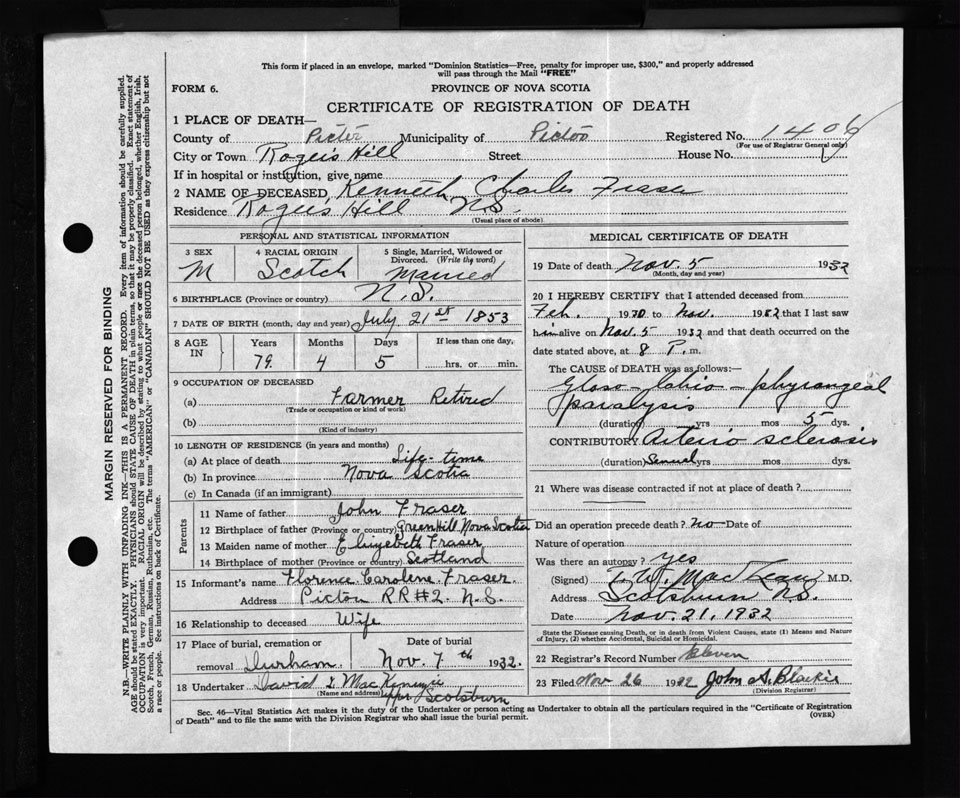 This form if placed in an envelope, marked "Dominion Statistics—Free, penalty for improper use, $300," and properly addressed
will pass through the Mail "FREE"
FORM 6. PROVINCE OF NOVA SCOTIA
CERTIFICATE OF REGISTRATION OF DEATH
1 PLACE OF DEATH—
County of Pictou Municipality of Pictou Registered No. 1406
(For use of Registrar General only)
City or Town Rogers Hill Street House No.
If in hospital or institution, give name
2 NAME OF DECEASED Kenneth Charles Fraser
Residence Rogers Hill N.S.
(Usual place of abode)
PERSONAL AND STATISTICAL INFORMATION
3 SEX 4 RACIAL ORIGIN 5 Single, Married, Widowed or
Divorced. (Write the word)
M Scotch Married
6 BIRTHPLACE (Province or country) N.S.
7 DATE OF BIRTH (month, day and year) July 21st 1853
8 AGE IN Years Months Days If less than one day,
79 4 5 hrs. or min.
9 OCCUPATION OF DECEASED
(a) Farmer Retired
(Trade or occupation or kind of work)
(b)
(Kind of industry)
10 LENGTH OF RESIDENCE (in years and months)
(a) At place of death Life-time
(b) In province Nova Scotia
(c) In Canada (if an immigrant)
Parents
11 Name of father John Fraser
12 Birthplace of father (Province or country) Green Hill Nova Scotia
13 Maiden name of mother Elizebeth Fraser
14 Birthplace of mother (Province or country) Scotland
15 Informant's name Florence Carolene Fraser.
Address Picton RR#2. N.S.
16 Relationship to deceased Wife
17 Place of burial, cremation or Date of burial
removal Durham Nov. 7th 1932.
18 Undertaker David MacKenzie
(Name and address) Scotsburn
MEDICAL CERTIFICATE OF DEATH
19 Date of death Nov. 5 1932
(Month, day and year)
20 I HEREBY CERTIFY that I attended deceased from
Feb. 1930 to Nov. 1932 that I last saw
him alive on Nov. 5 1932 and that death occurred on the
date stated above, at 8 P. m.
The CAUSE OF DEATH was as follows:—
Gloso-labio-phyrangeal
paralysis
(duration) yrs mos 5 dys.
CONTRIBUTORY Arterio sclerosis
(duration) Several yrs mos dys.
21 Where was disease contracted if not at place of death?
Did an operation precede death? no Date of
Nature of operation
Was there an autopsy? yes
(Signed) M.D.
Address Scotsburn N.S.
Date Nov. 21, 1932
State the Disease causing Death, or in death from Violent Causes, state (1) Means and Nature
of Injury, (2) whether Accidental, Suicidal or Homicidal.
22 Registrar's Record Number Eleven
23 Filed Nov 26 1932 John S. Blaikie
(Division Registrar)
Sec. 46—Vital Statistics Act makes it the duty of the Undertaker or person acting as Undertaker to obtain all the particulars required in the "Certificate of Registration
of Death" and to file the same with the Division Registrar who shall issue the burial permit. (OVER)
MARGIN RESERVED FOR BINDING
N.B.—WRITE PLAINLY WITH UNFADING INK—THIS IS A PERMANENT RECORD. Every item of information should be carefully supplied.
AGE should be stated EXACTLY. PHYSICIANS should STATE CAUSE OF DEATH in plain terms, so that it may be properly classified. Exact statement of
OCCUPATION is very important. RACIAL ORIGIN will be described by stating to what people or race the deceased person belonged, whether English, Irish,
Scotch, French, German, Russian, Ruthenian, etc. The terms "AMERICAN" or "CANADIAN" SHOULD NOT BE USED as they express citizenship but not
a race or people. See instructions on back of Certificate.